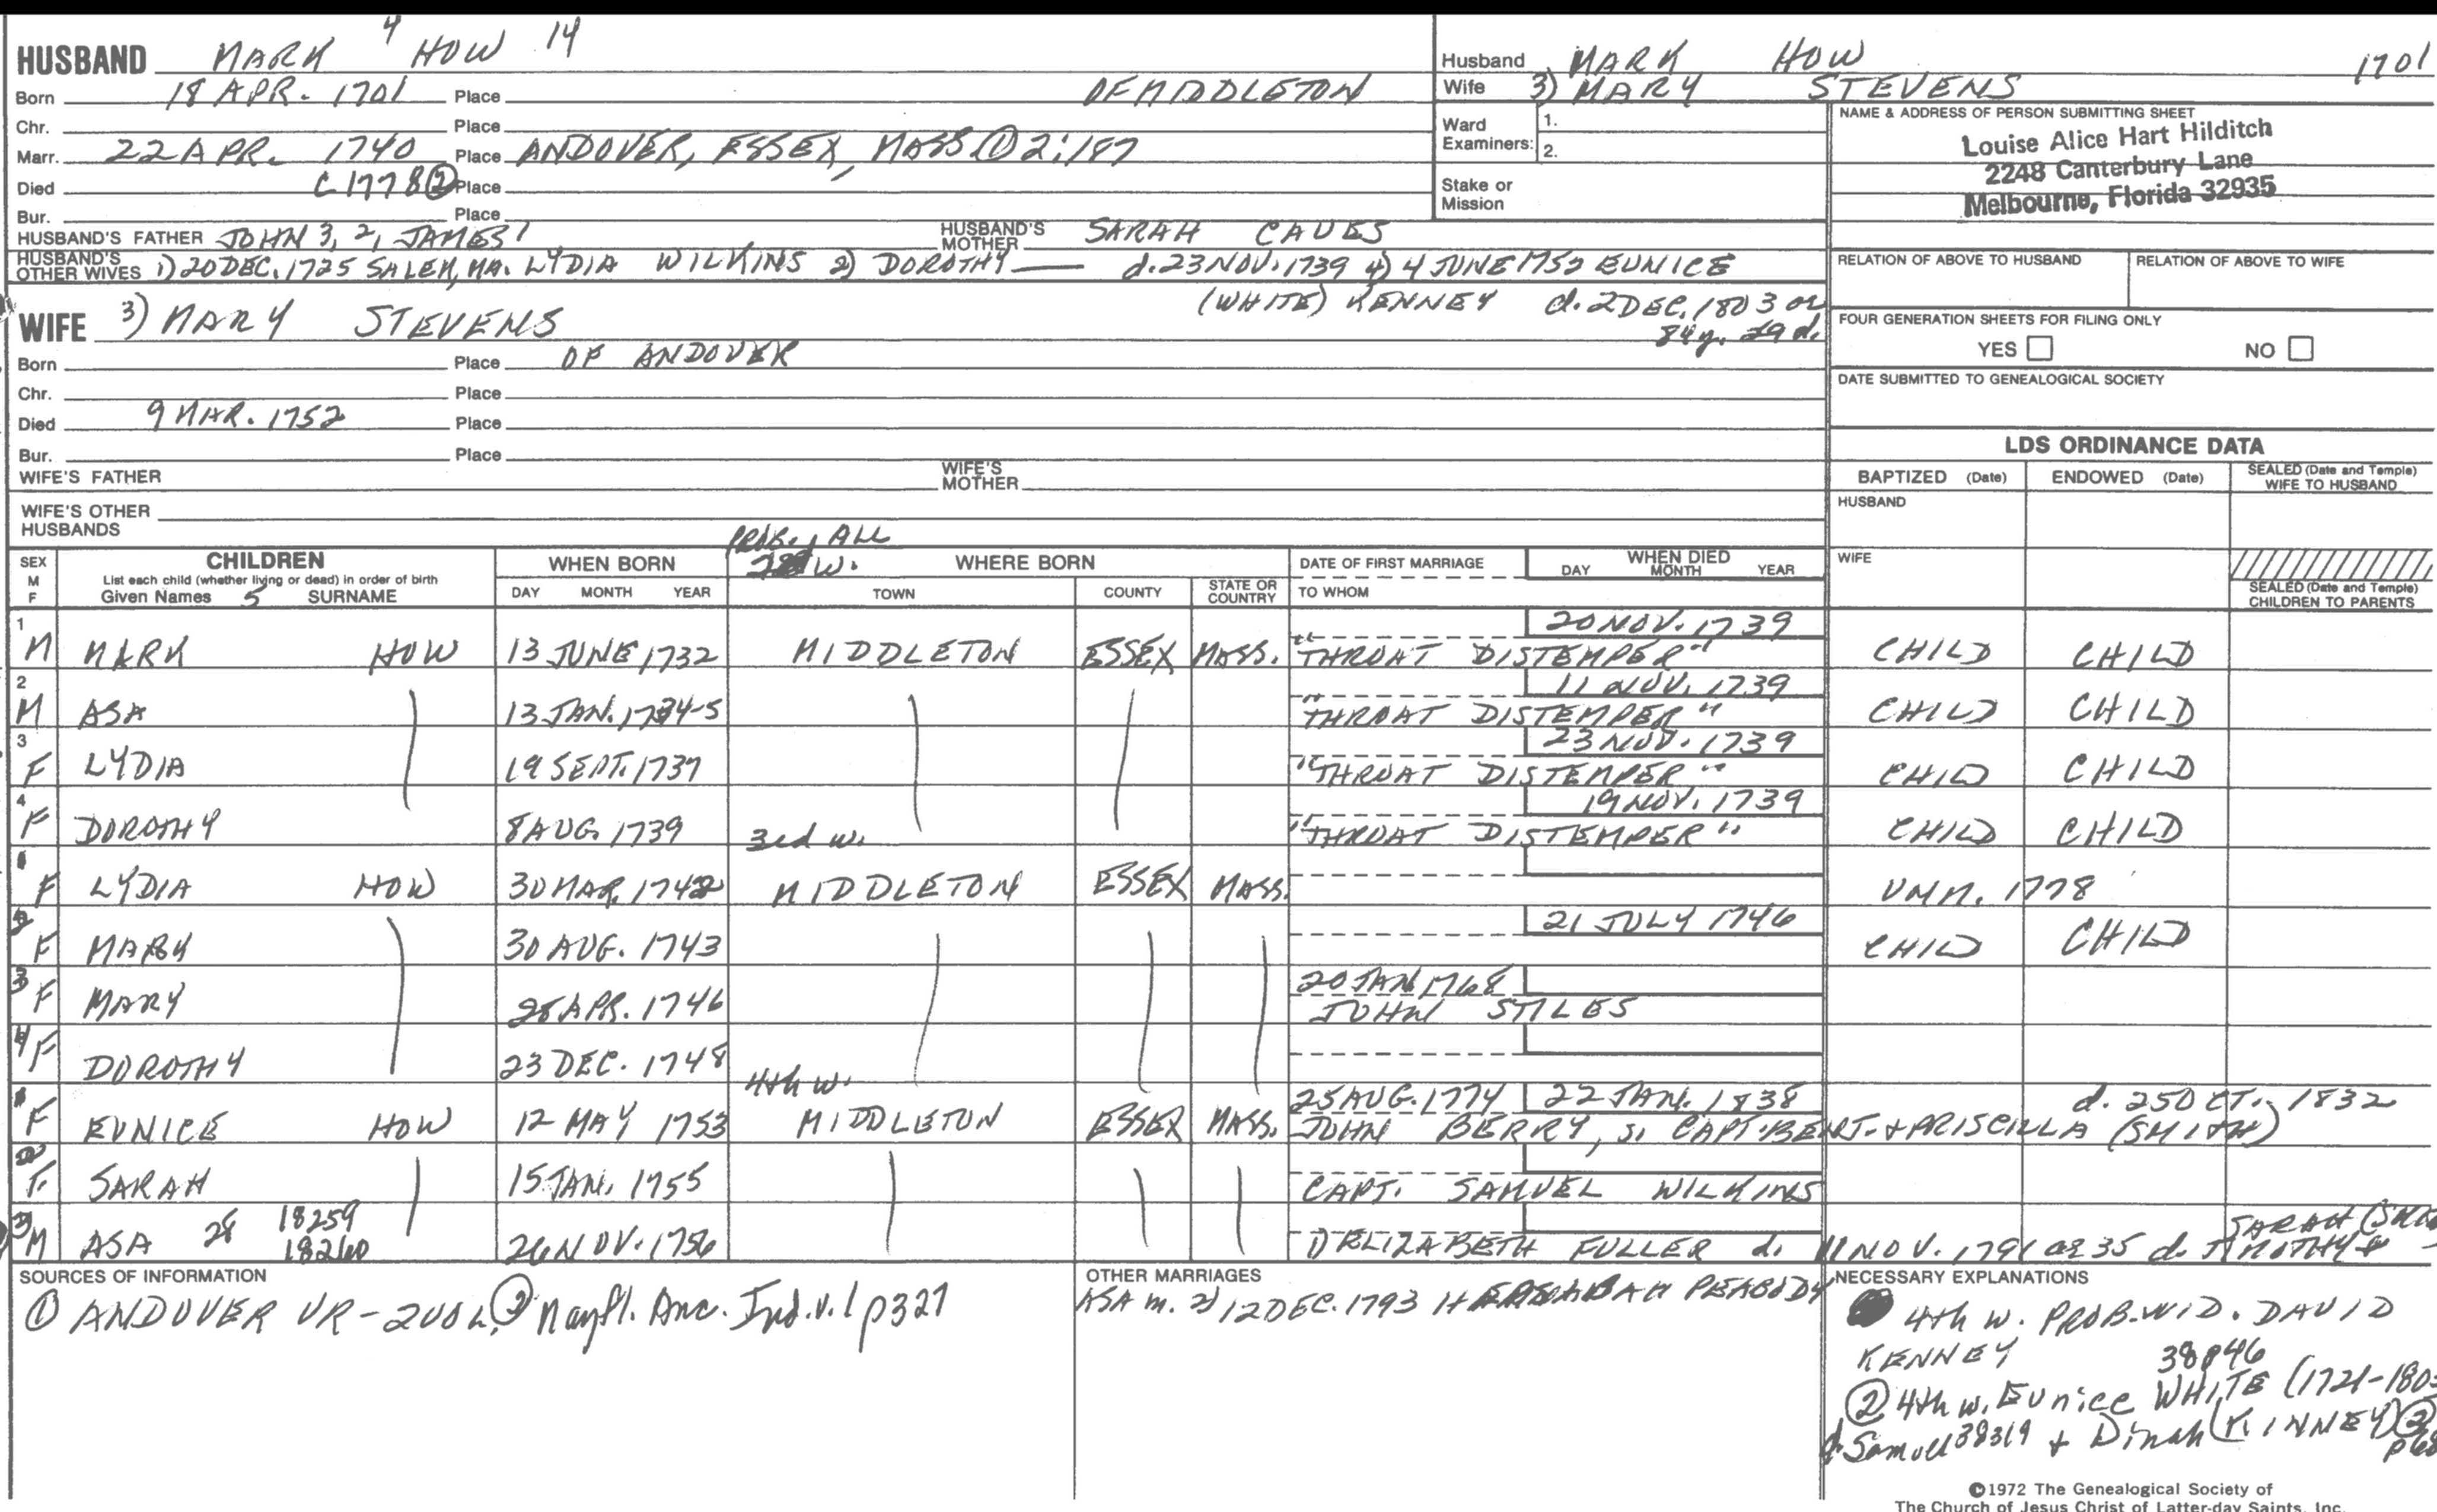 HUSBAND MARK 4 HOW 14
Born 18 APR. 1701 Place OF MIDDLETON
Chr. Place
Marr. 22 APR. 1740 Place ANDOVER, ESSEX, MASS ① 2:187
Died C 1778 ② Place
Bur. Place
HUSBAND'S FATHER JOHN 3, 2, JAMES 1 HUSBAND'S MOTHER SARAH CAVES
HUSBAND'S OTHER WIVES 1) 20 DEC. 1725 SALEM, MA. LYDIA WILKINS 2) DOROTHY — d. 23 NOV. 1739 4) 4 JUNE 1752 EUNICE
(WHITE) KENNEY d. 2 DEC. 1803 ae
84y. 29 d.
WIFE 3) MARY STEVENS
Born Place OF ANDOVER
Chr. Place
Died 9 MAR. 1752 Place
Bur. Place
WIFE'S FATHER WIFE'S MOTHER
WIFE'S OTHER HUSBANDS
Husband MARK HOW 1701
Wife 3) MARY STEVENS
Ward Examiners: 1.
2.
Stake or Mission
NAME & ADDRESS OF PERSON SUBMITTING SHEET
Louise Alice Hart Hilditch
2248 Canterbury Lane
Melbourne, Florida 32935
RELATION OF ABOVE TO HUSBAND RELATION OF ABOVE TO WIFE
FOUR GENERATION SHEETS FOR FILING ONLY
YES NO
DATE SUBMITTED TO GENEALOGICAL SOCIETY
LDS ORDINANCE DATA
BAPTIZED (Date) ENDOWED (Date) SEALED (Date and Temple) WIFE TO HUSBAND
HUSBAND
WIFE
SEALED (Date and Temple) CHILDREN TO PARENTS
PROB. ALL
w.
SEX M F CHILDREN WHEN BORN WHERE BORN DATE OF FIRST MARRIAGE WHEN DIED
List each child (whether living or dead) in order of birth
Given Names 5 SURNAME DAY MONTH YEAR TOWN COUNTY STATE OR COUNTRY TO WHOM DAY MONTH YEAR
20 NOV. 1739
1 M MARK HOW 13 JUNE 1732 MIDDLETON ESSEX MASS. "THROAT DISTEMPER" CHILD CHILD
11 NOV. 1739
2 M ASA 13 JAN. 1734-5 "THROAT DISTEMPER" CHILD CHILD
23 NOV. 1739
3 F LYDIA 19 SEPT. 1737 "THROAT DISTEMPER" CHILD CHILD
19 NOV. 1739
4 F DOROTHY 8 AUG. 1739 3rd w. "THROAT DISTEMPER" CHILD CHILD
F LYDIA HOW 30 MAR. 1742 MIDDLETON ESSEX MASS. UNM. 1778
21 JULY 1746
F MARK 30 AUG. 1743 CHILD CHILD
20 JAN 1768
3 F MARY 28 APR. 1746 JOHN STILES
4 F DOROTHY 23 DEC. 1748 4th w.
25 AUG. 1774 22 JAN. 1838 d. 25 OCT. 1832
F EUNICE HOW 12 MAY 1753 MIDDLETON ESSEX MASS. JOHN BERRY, s. CAPT. BENJ. + PRISCILLA (SMITH)
2 F. SARAH 15 JAN. 1755 CAPT. SAMUEL WILKINS
3 M ASA 28 18259 18260 26 NOV. 1756 1) ELIZABETH FULLER d. 11 NOV. 1791 ae 35 d. TIMOTHY + SARAH
SOURCES OF INFORMATION
① ANDOVER VR-2VOL. ② Mayfl. Anc. Ind. v.1 p327
OTHER MARRIAGES
ASA m. 2) 12 DEC. 1793 PEABODY
NECESSARY EXPLANATIONS
4th w. PROB. WID. DAVID
KENNEY 38846
② 4th w. Eunice WHITE (1721-180
d. Samuel 38319 + Dinah (KINNEY) ②
©1972 The Genealogical Society of
The Church of Jesus Christ of Latter-day Saints, Inc.